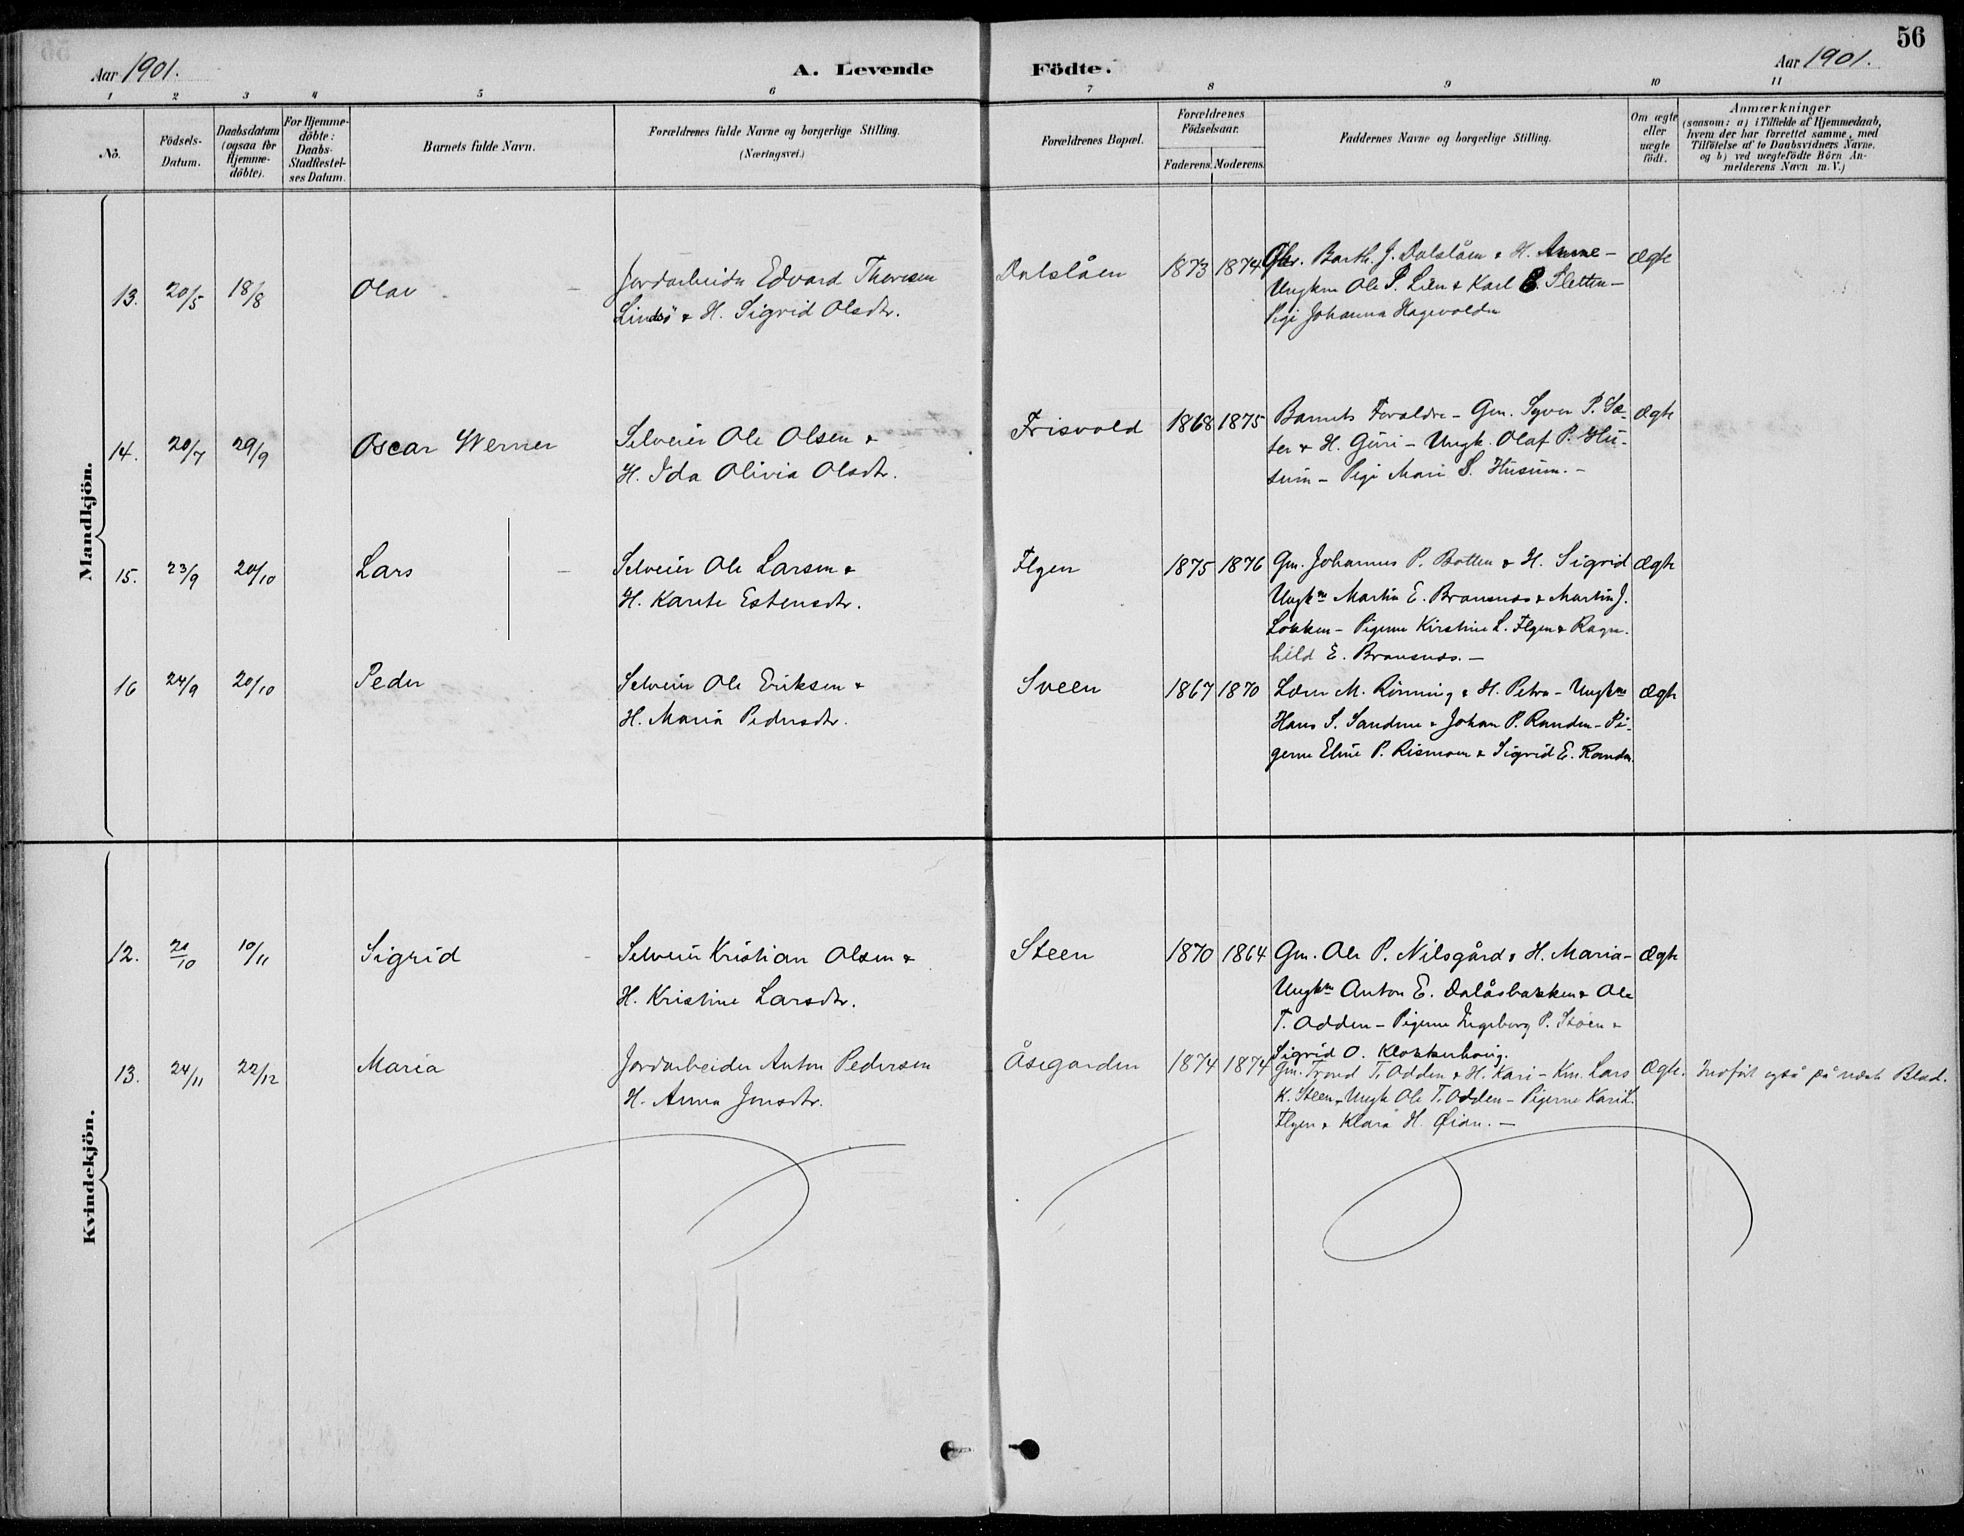 56
Aar 1901.
A. Levende Födte.
Aar 1901.
1 2 3 4 5 6 7 8 9 10 11
No.
Födsels-Datum.
Daabsdatum (ogsaa for Hjemme-döbte).
For Hjemme-döbte: Daabs-Stadfæstel-ses Datum.
Barnets fulde Navn.
Forældrenes fulde Navne og borgerlige Stilling.
(Næringsvei.)
Forældrenes Bopæl.
Forældrenes Födselsaar.
Faderens. Moderens.
Faddernes Navne og borgerlige Stilling.
Om ægte eller uægte födt.
Anmærkninger
(saasom: a) i Tilfælde af Hjemmedaab,
hvem der har forrettet samme, med
Tilföielse af to Daabsvidners Navne,
og b) ved uægtefödte Börn An-
melderens Navn m. V.)
Mandkjön.
13. 20/5 18/8 Olav
Jordarbeider Edvard Thoresen
Lindsö & H. Sigrid Olsdtr.
Dalslåen 1873 1874
Gbr. Barth. J. Dalslåen & H. Anne –
Ungkm Ole P. Lien & Karl E. Sletten –
Pige Johanna Hagevolden
Ægte
14. 20/7 29/9 Oscar Werner
Selveier Ole Olsen &
H. Ida Olivia Olsdtr.
Frisvold 1868 1875
Barnets Forældre – Gm. Syver P. Sæ-
ter & H. Guri – Ungk. Olaf P. Hu-
sum – Pige Mari S. Husum. –
Ægte
15. 23/9 20/10 Lars
Selveier Ole Larsen &
H. Karete Estensdtr.
Flgen 1875 1876
Gm. Johannes P. Botten & H. Sigrid
Ungkm Martin E. Bransnes & Martin J.
Lökken – Pigerne Kirstine L. Flgen & Ragn-
hild E. Bransnes. –
Ægte
16 24/9 20/10 Peder
Selveier Ole Eriksen &
H. Maria Pedersdtr.
Sveen 1867 1870
Lærer M. Rönning & H. Petra – Ungkm
Hans S. Sandene & Johan P. Randen – Pi-
gerne Eline P. Rismoen & Sigrid E. Randen.
Ægte
Kvindekjön.
12. 20/10 10/11 Sigrid
Selveier Kristian Olsen &
H. Kristine Larsdtr.
Steen 1870 1864
Gm. Ole P. Nilsgård & H. Maria –
Ungkm Anton E. Dalåsbakken & Ole
T. Odden – Pigerne Ingeborg P. Stöen &
Sigrid O. Klokkerhoug.
Ægte
13. 24/11 22/12 Maria
Jordarbeider Anton Pedersen
H. Anna Jonsdtr.
Åsegarden 1874 1874
Gm. Trond T. Odden & H. Kari – Km. Lars
K. Steen – Ungk Ole T. Odden – Pigerne Kari L.
Flgen & Klara H. Øian. –
Ægte.
Indfört også på næste Blad.